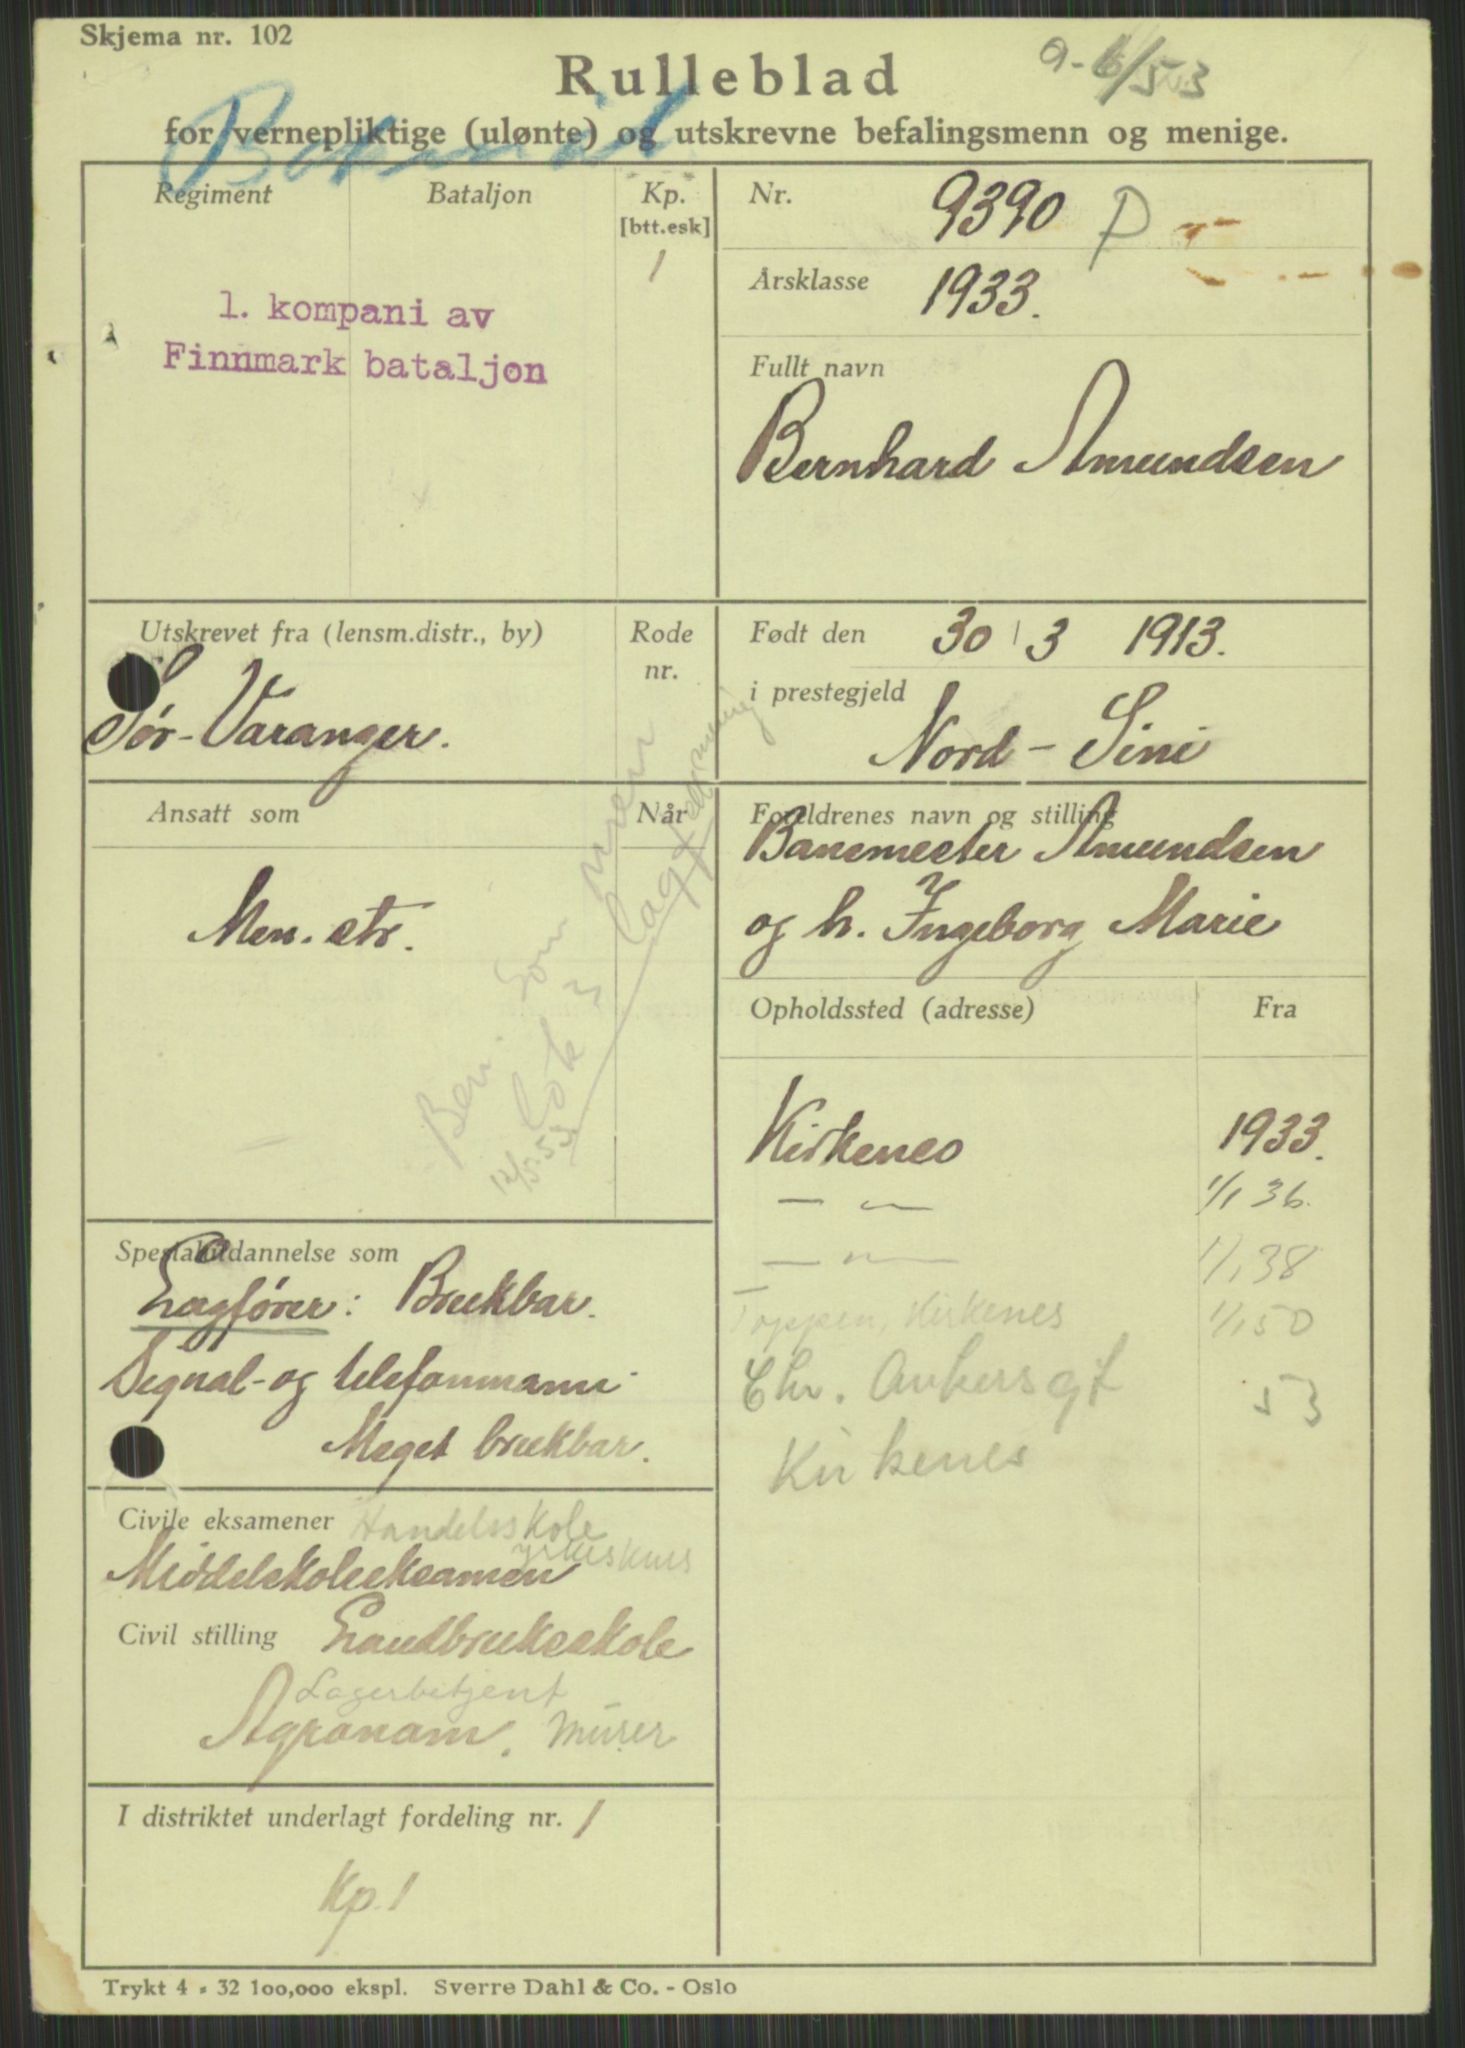 Skjema nr. 102
Rulleblad
for vernepliktige (ulønte) og utskrevne befalingsmenn og menige.
Regiment Bataljon Kp.
[btt.esk]
1
1. kompani av
Finnmark bataljon
Nr. 9390 P
Årsklasse 1933.
Fullt navn
Bernhard Amundsen
Utskrevet fra (lensm.distr., by) Rode
nr.
Sør-Varanger.
Født den 30/3 1913.
i prestegjeld
Nord-
Ansatt som Når
Men. str.
Ben. som
12/5.53
Foreldrenes navn og stilling
Banemester Amundsen
og h. Ingeborg Marie
Opholdssted (adresse) Fra
Kirkenes 1933.
— " — 1/1 36.
— " — 1/1 38
Toppen, Kirkenes 1/1 50
Chr. Ankersgt 53
Kirkenes
Spesialutdannelse som
Lagfører: Brukbar.
Signal- og telefonmann:
Meget brukbar.
Civile eksamener Handelsskole
yrkeskurs
Middelskoleeksamen
Civil stilling Landbruksskole
Lagerbetjent
Agronom. Murer
I distriktet underlagt fordeling nr. 1
Kp. 1
Trykt 4 - 32 100,000 ekspl. Sverre Dahl & Co. - Oslo